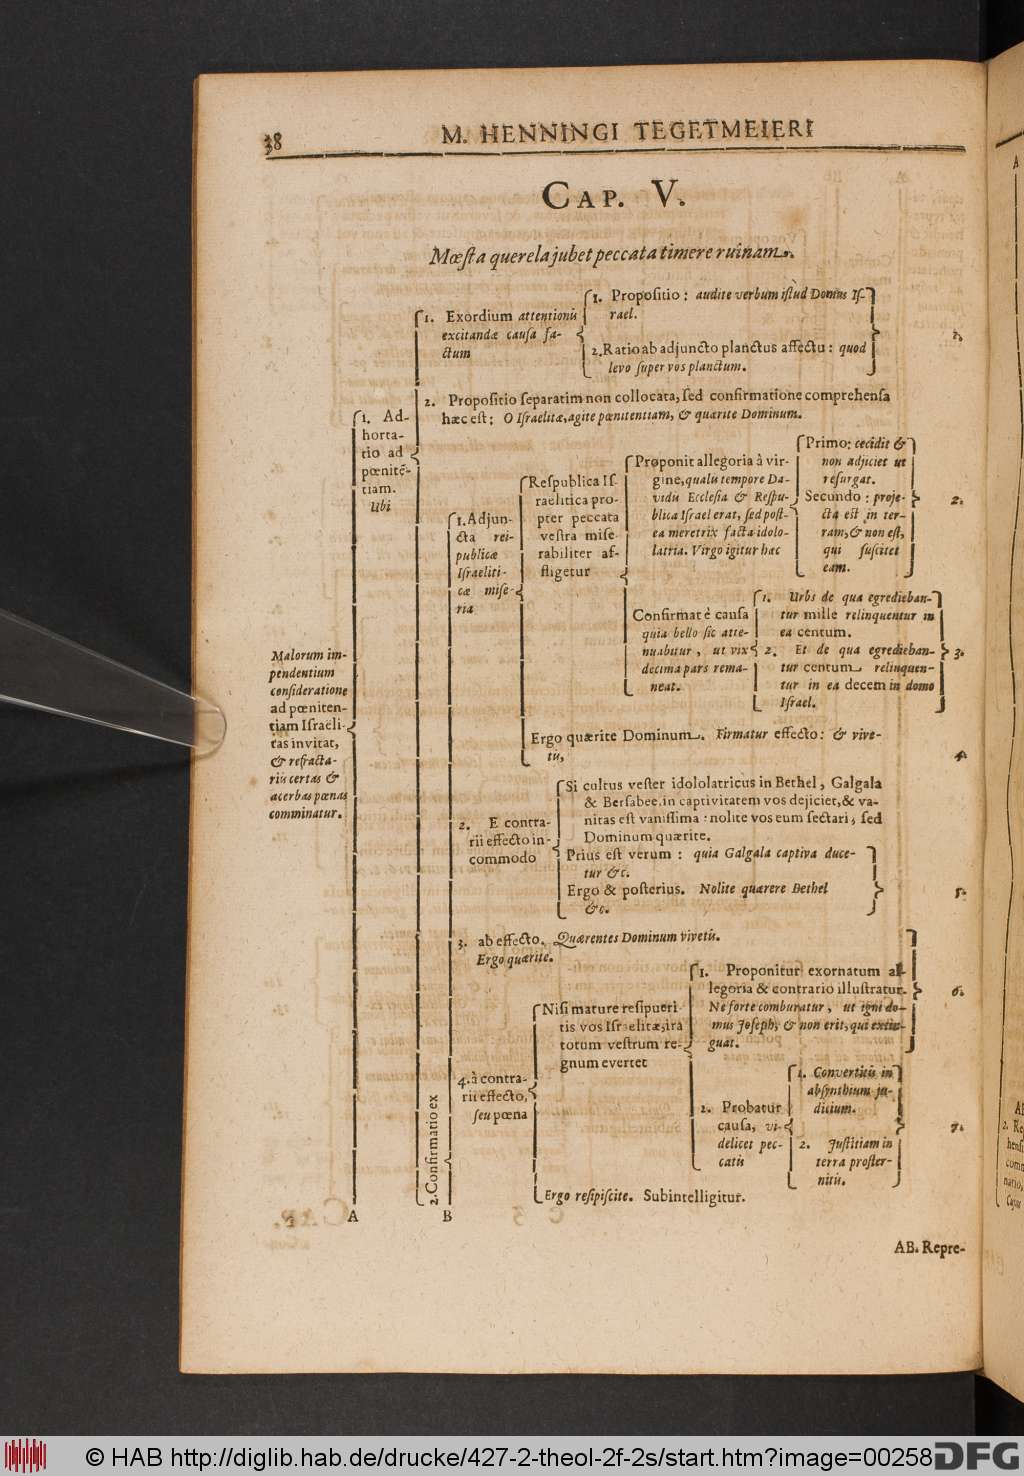 38
M. HENNINGI TEGETMEIERI
CAP. V.
Mœsta querela jubet peccata timere ruinam.
Malorum im-
pendentium
consideratione
ad pœniten-
tiam Israëli-
tas invitat,
& refracta-
riis certas &
acerbas pœnas
comminatur.
1. Ad-
horta-
tio ad
pœnitẽ-
tiam.
Ubi
1. Exordium attentionis
excitandæ causa fa-
ctum
1. Propositio: audite verbum istud Domus Is-
rael.
2. Ratio ab adjuncto planctus affectu: quod
levo super vos planctum.
1.
2. Propositio separatim non collocata, sed confirmatione comprehensa
hæc est: O Israelitæ, agite pœnitentiam, & quærite Dominum.
2. Confirmatio ex
1. Adjun-
cta rei-
publicæ
Israeliti-
cæ mise-
ria
Respublica Is-
raëlitica pro-
pter peccata
vestra mise-
rabiliter af-
fligetur
Proponit allegoria â vir-
gine, qualis tempore Da-
vidis Ecclesia & Respu-
blica Israel erat, sed post-
ea meretrix facta idolo-
latria. Virgo igitur hæc
Primo: cecidit &
non adjiciet ut
resurgat.
Secundo: proje-
cta est in ter-
ram, & non est,
qui suscitet
eam.
2.
Confirmat è causa
quia bello sic atte-
nuabitur, ut vix
decima pars rema-
neat.
1. Urbs de qua egredieban-
tur mille relinquentur in
ea centum.
2. Et de qua egredieban-
tur centum relinquen-
tur in ea decem in domo
Israel.
3.
Ergo quærite Dominum. Firmatur effecto: & vive-
tis,
4.
2. E contra-
rii effecto in-
commodo
Si cultus vester idololatricus in Bethel, Galgala
& Bersabee, in captivitatem vos dejiciet, & va-
nitas est vanissima: nolite vos eum sectari, sed
Dominum quærite.
Prius est verum: quia Galgala captiva duce-
tur &c.
Ergo & posterius. Nolite quærere Bethel
&c.
5.
3. ab effecto. Quærentes Dominum vivetis.
Ergo quærite.
4. à contra-
rii effecto,
seu pœna
Nisi mature resipueri
tis vos Israelitæ, ira
totum vestrum re-
gnum evertet
1. Proponitur exornatum al-
legoria & contrario illustratur.
Ne forte comburatur, ut igni do-
mus Joseph, & non erit, qui extin-
guat.
6.
2. Probatur
causa, vi-
delicet pec-
catis
1. Convertitis in
absynthium ju-
dicium.
2. Justitiam in
terra proster-
nitis.
7.
Ergo resipiscite. Subintelligitur.
A B
AB. Repre-
© HAB http://diglib.hab.de/drucke/427-2-theol-2f-2s/start.htm?image=00258
DFG